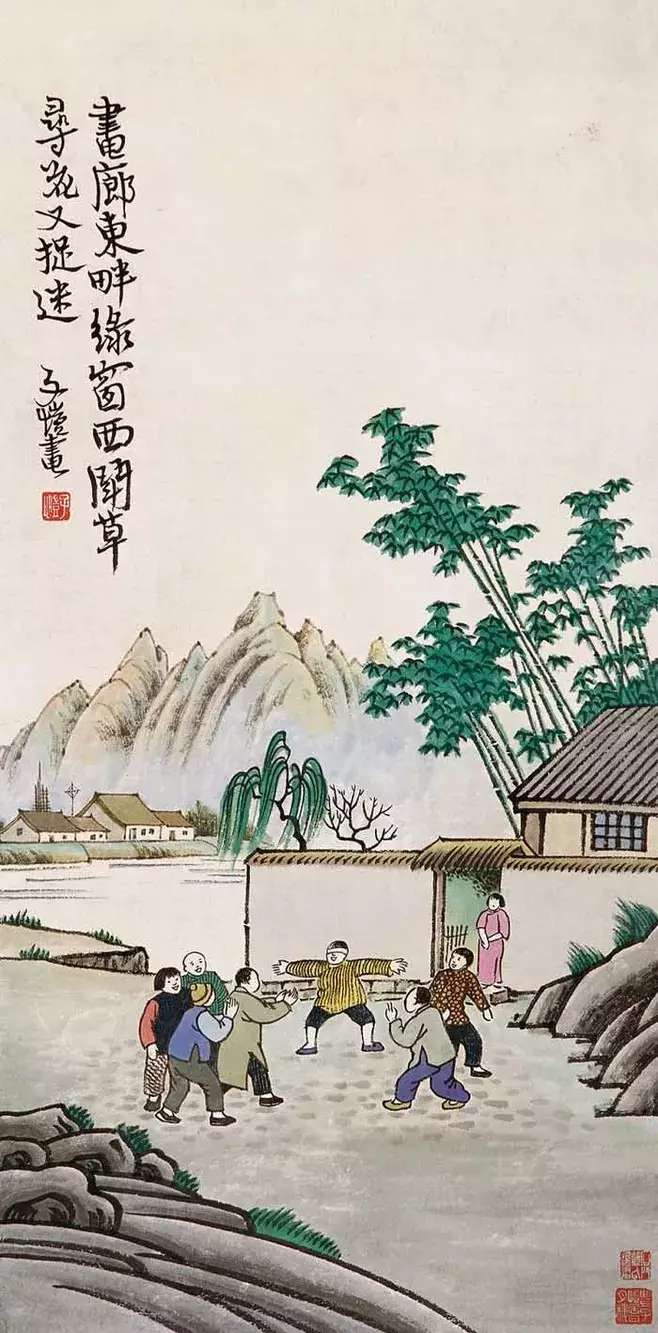 畫廊東畔綠窗西鬪草
尋花又捉迷
子愷畫
子愷